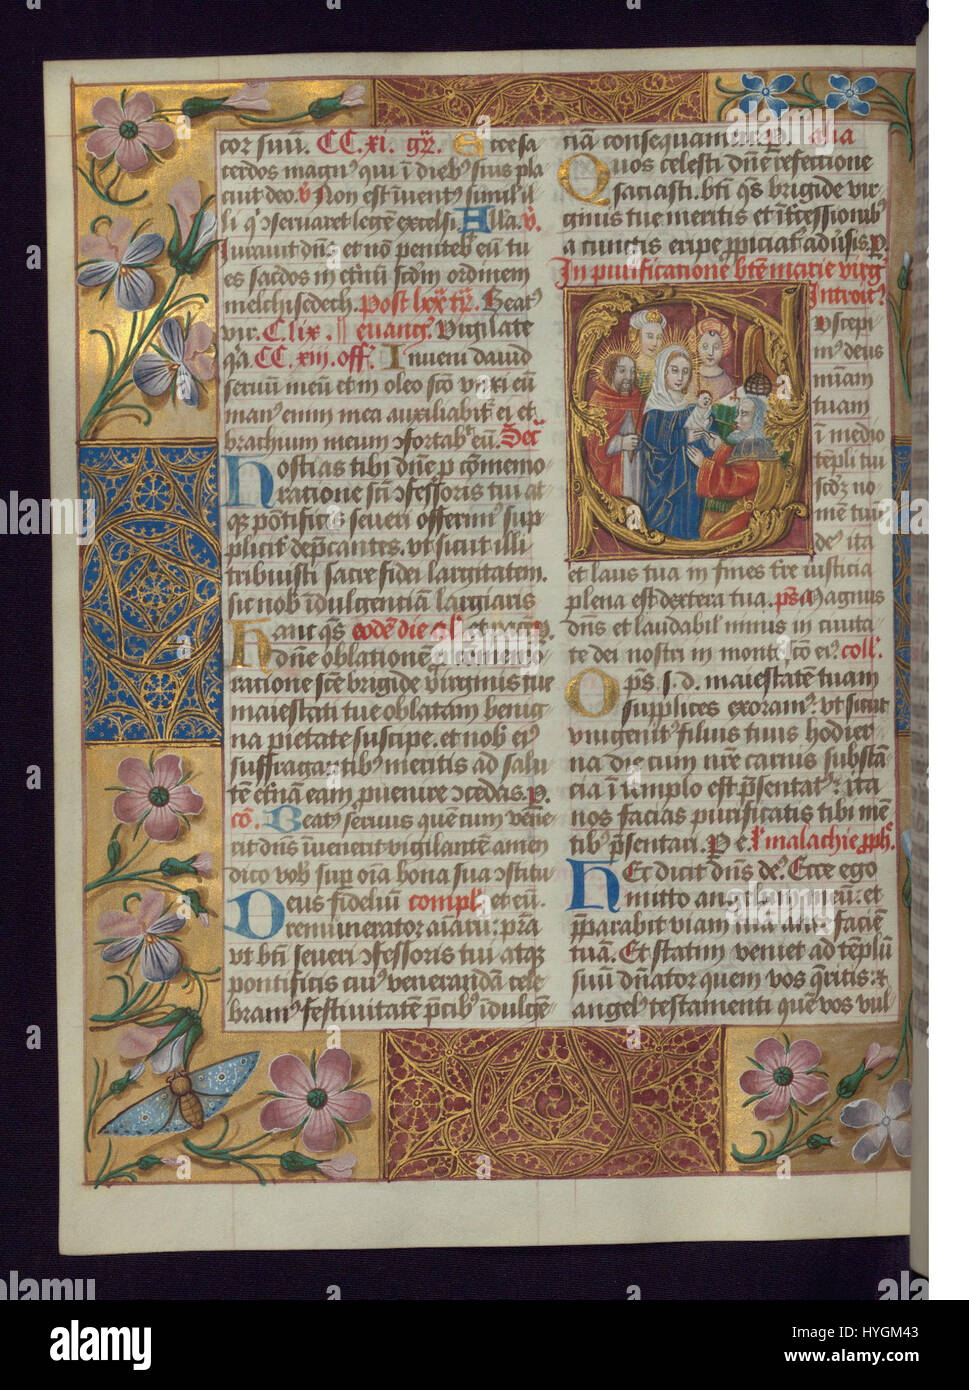 cor suu. CC.xi. gr. Ecce sa
cerdos magn9 qui i dieb9 suis pla
cuit deo. v Non est iuent9 simil il
li q' oservaret legem excelsi. Alla. v.
Iuravit dns et no penitebt eu tu
es sacdos in etnu scdm ordinem
melchisedech. Post lxx tr. Beat9
vir. C.lix. evang. Vigilate
qa CC.xiii. off. Inveni david
servu meu et in oleo sco unxi eu
man9 enim mea auxiliabit ei et
brachium meum ofortabt eu. Secr
Hostias tibi dne p comemo
ratione sci ofessoris tui at
q pontificis severi offerim9 sup
plicit depcantes. ut sicut illi
tribuisti sacre fidei largitatem.
sic nob idulgenciam largiaris
Hanc qs eode die et
dne oblatione p comemo
ratione sce brigide virginis tue
maiestati tue oblatam benig
na pietate suscipe. et nob ei9
suffragantib9 meritis ad salu
te etnam eam puenire ocedas. P.
co. Beat9 servus quem cum vene
rit dns invenerit vigilantem amen
dico vob sup oia bona sua ostitu
Deus fidelium compl. et eu.
remunerator aiaru: psta
ut bti severi ofessoris tui atqz
pontificis cui9 venerandam cele
bram9 festivitate pcib9 idulge
cia consequamur. P. alia
Quos celesti dne refectione
saciasti. bte qs brigide vir
ginis tue meritis et itcessionib9
a cunctis eripe ppiciat9 adusis P.
In purificatione bte marie virg
Introit9
Uscepi
m9 deus
miam
tuam
i medio
templi tui
scdz no
men tuu
de9 ita
et laus tua in fines tre iusticia
plena est dextera tua. ps Magnus
dns et laudabil nimis in civita
te dei nostri in monte sco ei9 coll.
Ops s.d. maiestate tuam
supplices exoram9: ut sicut
unigenit9 filius tuus hodier
na die cum nre carnis substan
cia i templo est psentat9: ita
nos facias purificatis tibi me
tib9 psentari. P e. l' malachie pph.
Hec dicit dns de9. Ecce ego
mitto angelum meu: et
pparabit viam ante facie
tuam. Et statim veniet ad templu
suu dnator quem vos qritis: et
angel9 testamenti que vos vul
alamy
alamy stock photo
alamy
HYGM43
www.alamy.com